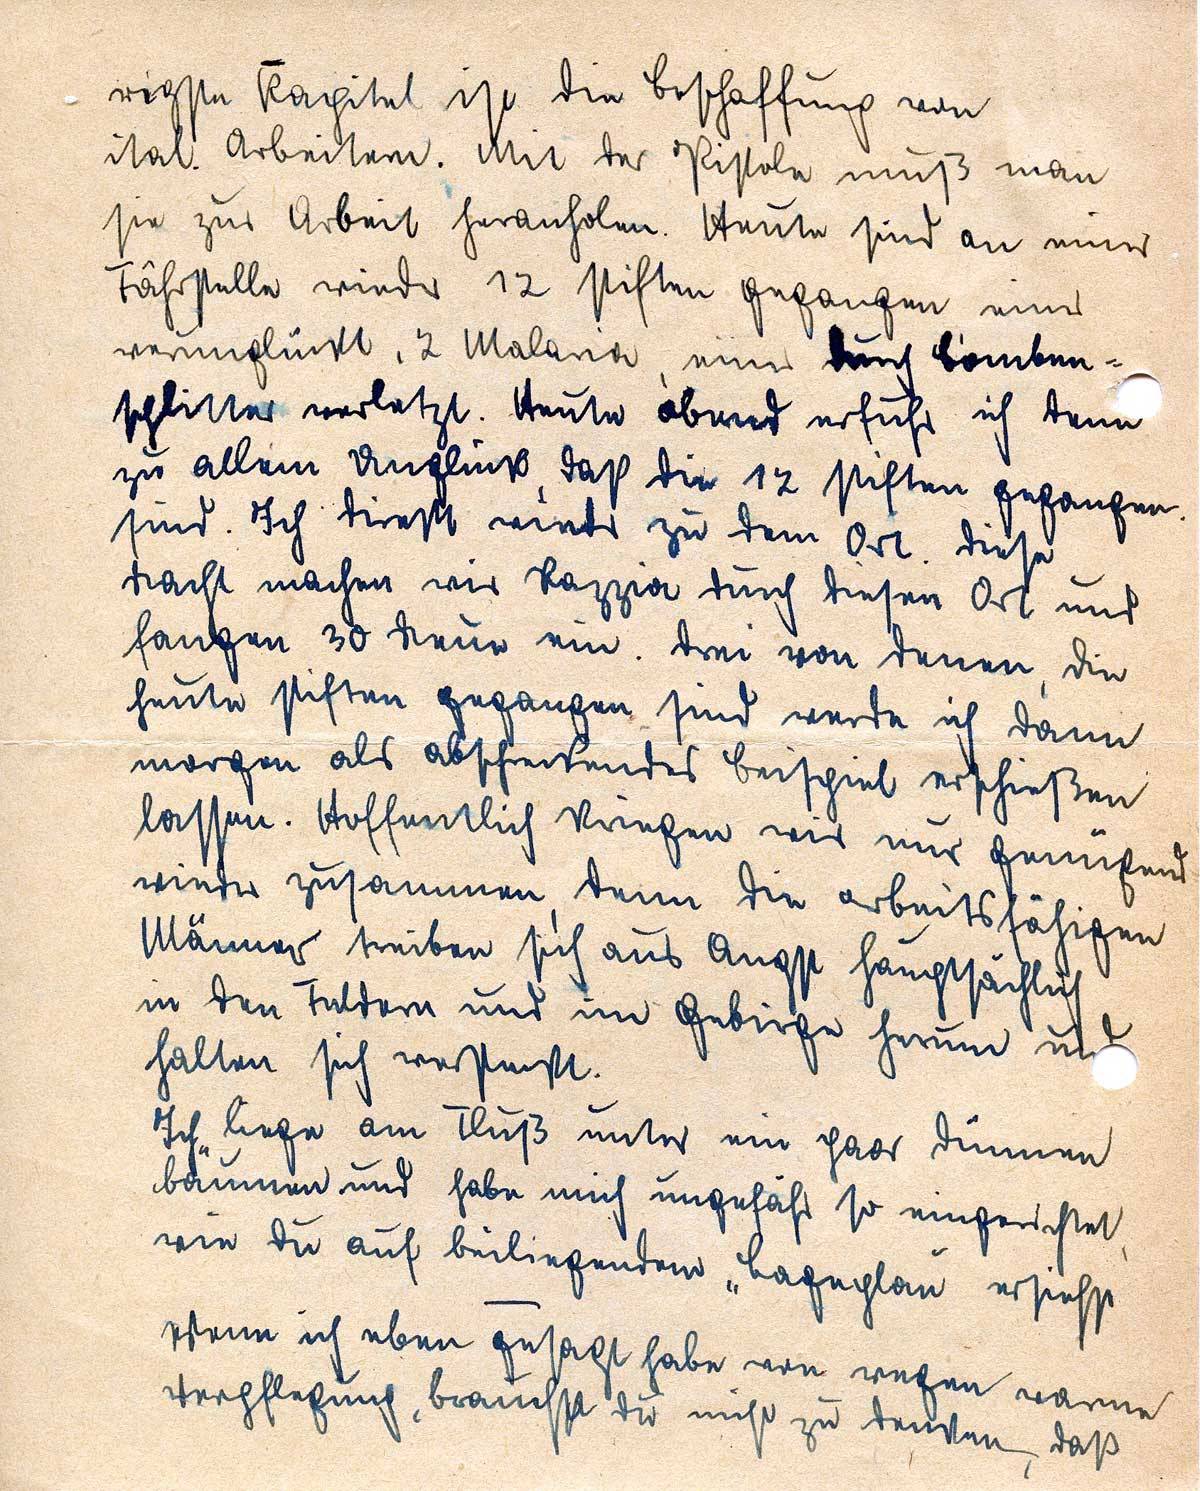 rigste Kapitel ist die Beschaffung von
ital. Arbeitern. Mit der Pistole muß man
sie zur Arbeit heranholen. Heute sind an einer
Fährstelle wieder 12 stiften gegangen einer
verunglückt, 2 Malaria, einer durch Bomben=
splitter verletzt. Heute abend erfuhr ich denn
zu allem Unglück, daß die 12 stiften gegangen
sind. Ich direkt wieder zu dem Ort. Diese
Nacht machen wir Razzia durch diesen Ort und
fangen 30 Neue ein. Drei von denen, die
heute stiften gegangen sind werde ich dann
morgen als abschreckendes Beispiel erschießen
lassen. Hoffentlich kriegen wir nur genügend
wieder zusammen, denn die arbeitsfähigen
Männer treiben sich aus Angst hauptsächlich
in den Feldern und im Gebirge herum und
halten sich versteckt.
Ich liege am Fluß unter ein paar dünnen
Bäumen und habe mich ungefähr so eingerichtet,
wie Du auf beiliegendem „Lageplan ersiehst
Wenn ich eben gesagt habe von wegen warme
Verpflegung, brauchst Du nicht zu denken, daß